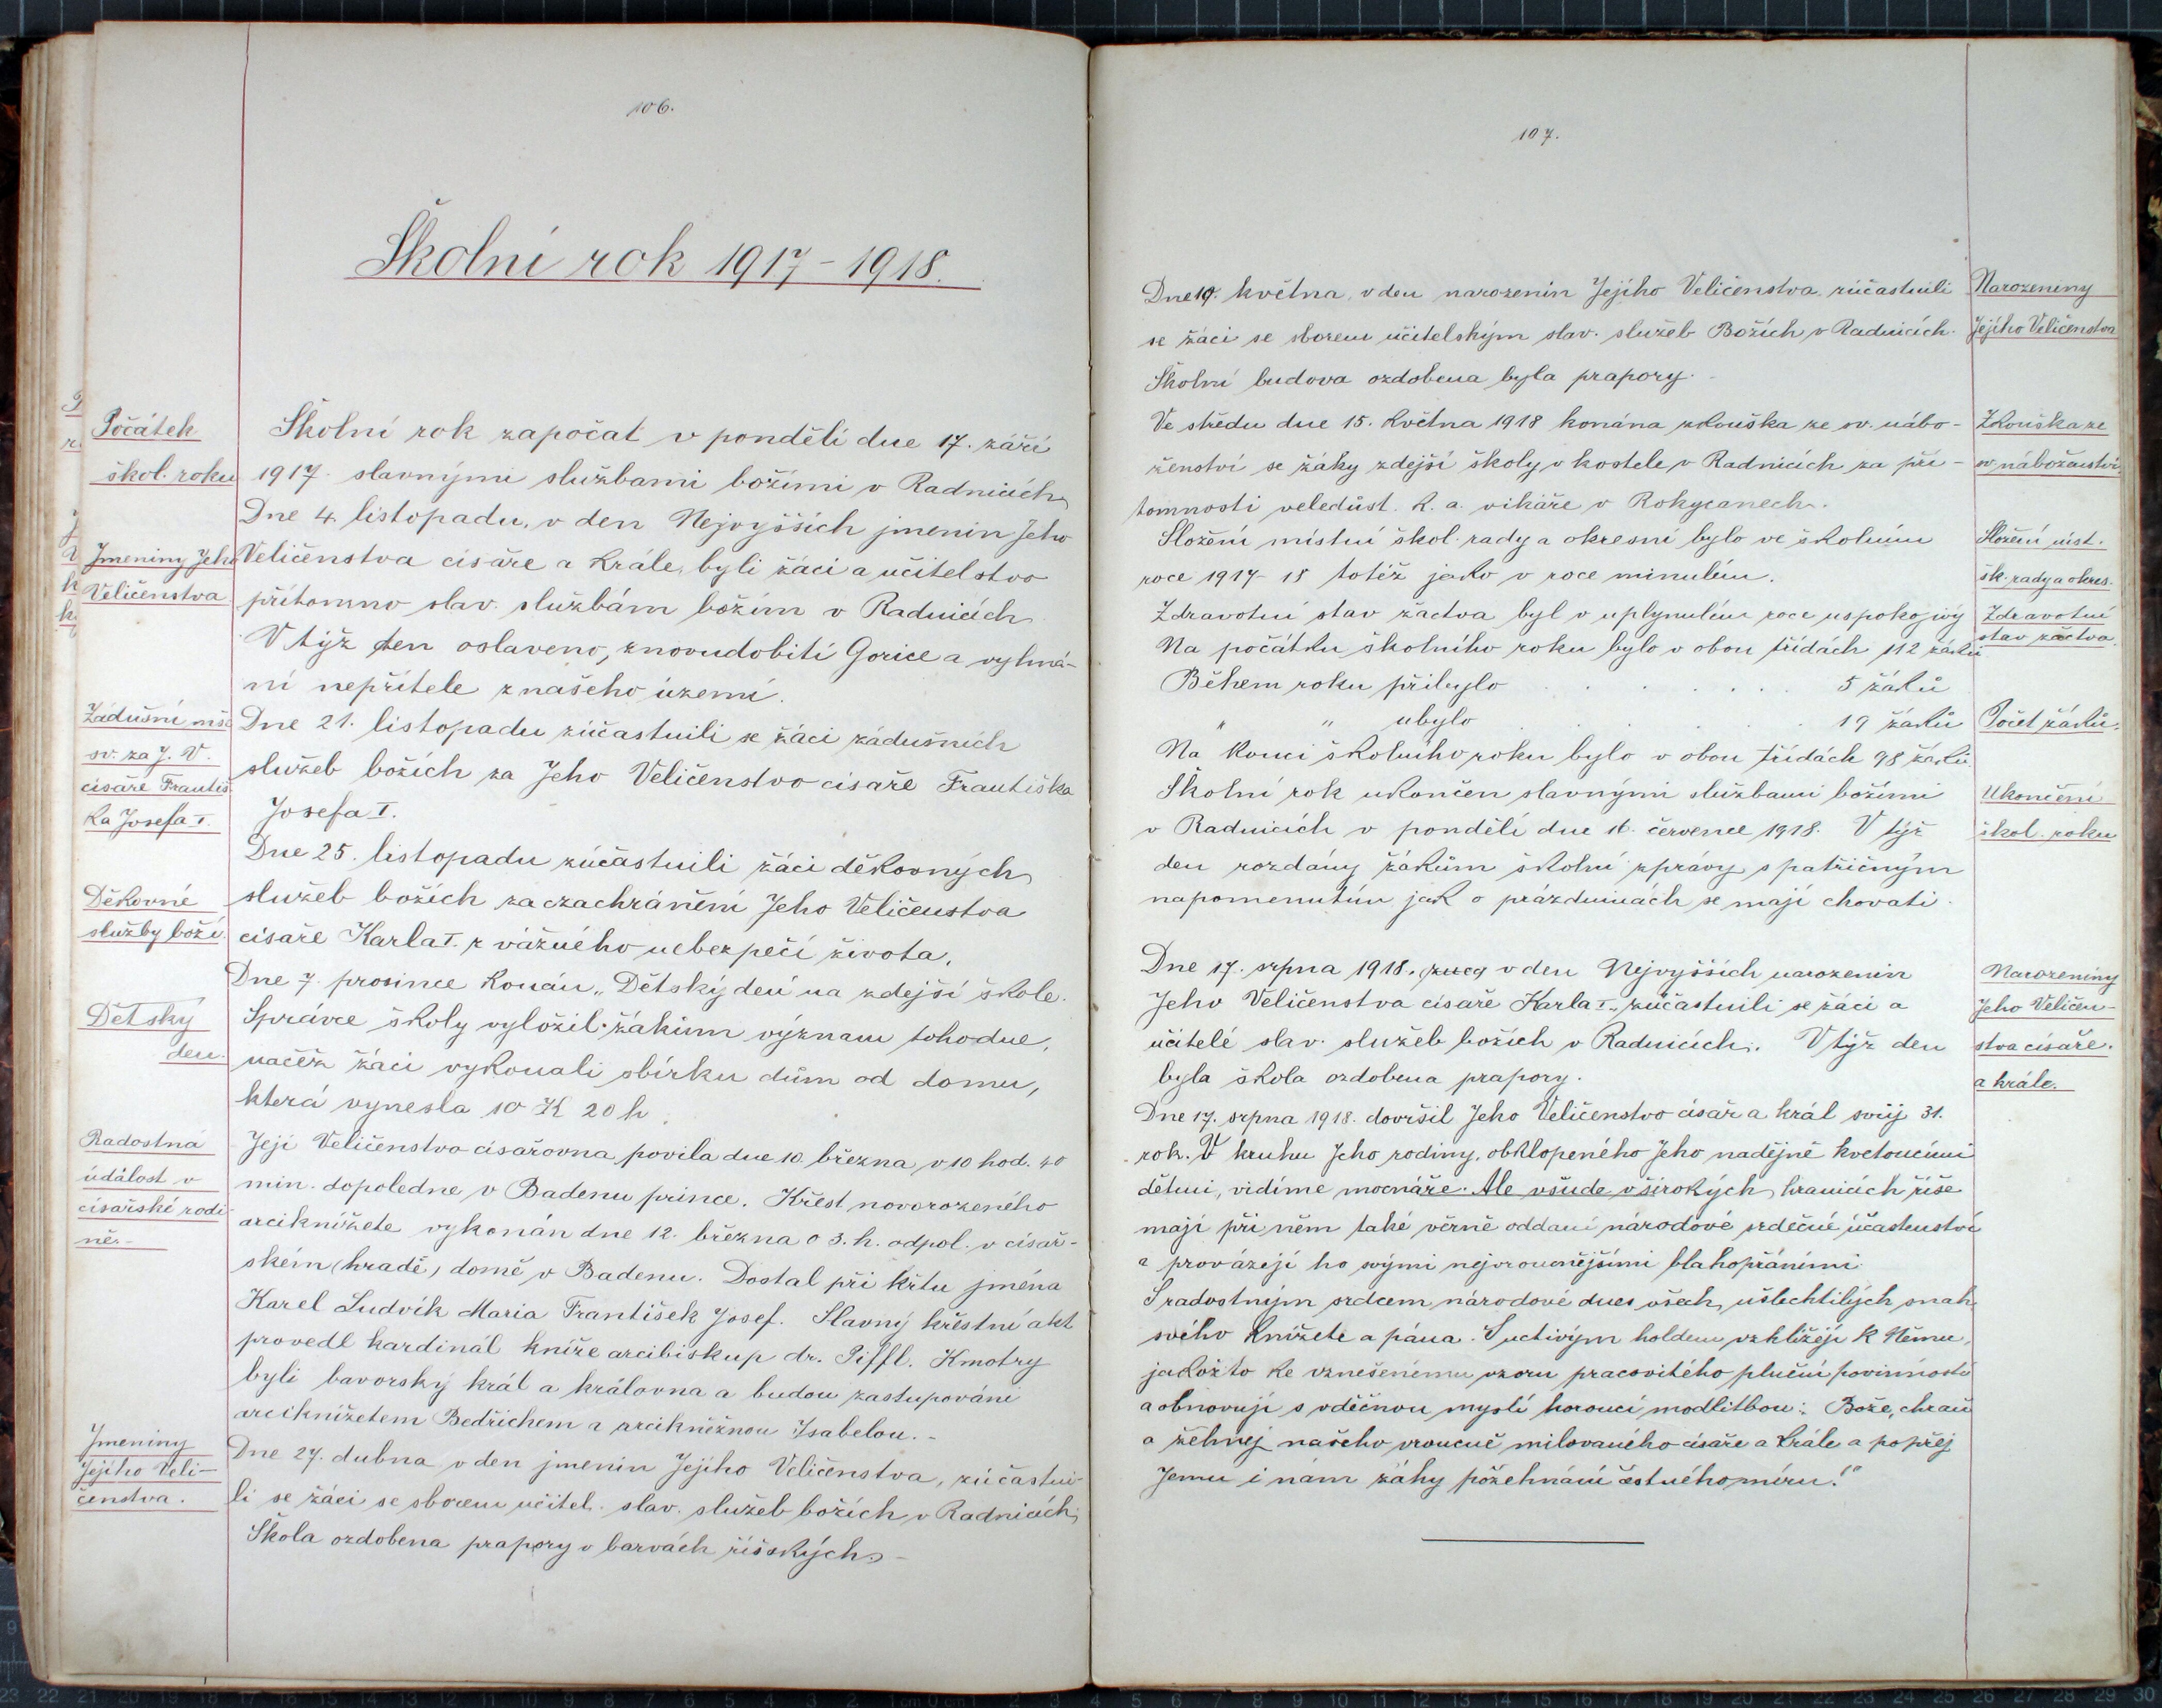 106.
Školní rok 1917-1918.
Počátek
škol. roku
Školní rok započat v pondělí dne 17. září
1917 slavnými službami božími v Radnicích.
Dne 4. listopadu, v den Nejvyšších jmenin Jeho
Jmeniny Jeho
Veličenstva
Veličenstva císaře a krále, byli žáci a učitelstvo
přítomno slav. službám božím v Radnicích
V týž den oslaveno, znovudobití Gorice a vyhná-
ní nepřítele z našeho území.
Zádušní mše
sv. za J. V.
císaře Františ
ka Josefa I.
Dne 21. listopadu zúčastnili se žáci zádušních
služeb božích za Jeho Veličenstvo císaře Františka
Josefa I.
Dne 25. listopadu zúčastnili žáci děkovných
Děkovné
služby boží.
služeb božích za zachránění Jeho Veličenstva
císaře Karla I. z vážného nebezpečí života.
Dne 7. prosince konán „Dětský den na zdejší škole.
Dětský
den.
Správce školy vyložil žákům význam toho dne,
načež žáci vykonali sbírku dům od domu,
která vynesla 10 K 20 h.
Radostná
událost v
císařské rodi
ně.-
Její Veličenstvo císařovna povila dne 10. března v 10 hod. 40
min. dopoledne v Badenu prince. Křest novorozeného
arciknížete vykonán dne 12. března o 3. h. odpol. v císař-
ském (hradě) domě v Badenu. Dostal při křtu jména
Karel Ludvík Maria František Josef. Slavný křestní akt
provedl kardinál kníže arcibiskup dr. Piffl. Kmotry
byli bavorský král a královna a budou zastupováni
arciknížetem Bedřichem a arcikněžnou Isabelou.-
Jmeniny
Jejího Veli-
čenstva.
Dne 27. dubna v den jmenin Jejího Veličenstva, zúčastni-
li se žáci se sborem učitel. slav. služeb božích v Radnicích,
Škola ozdobena prapory v barvách říšských.-
107.
Dne 19. května, v den narozenin Jejího Veličenstva, zúčastnili
Narozeniny
se žáci se sborem učitelským slav. služeb Božích v Radnicích.
Jejího Veličenstva
Školní budova ozdobena byla prapory.-
Ve středu dne 15. května 1918 konána zkouška ze sv. nábo-
Zkouška ze
ženství se žáky zdejší školy v kostele v Radnicích za pří-
sv. náboženství.
tomnosti veledůst. R. a. vikáře v Rokycanech.
Složení místní škol. rady a okresní bylo ve školním
Složení míst.
roce 1917-18 totéž jako v roce minulém.
šk. rady a okres.
Zdravotní stav žactva byl v uplynulém roce uspokojivý
Zdravotní
stav žactva.
Na počátku školního roku bylo v obou třídách 112 žáků
Během roku přibylo . . . . . . . 5 žáků
" " ubylo . 19 žáků
Počet žáků.
Na konci školního roku bylo v obou třídách 98 žáků
Školní rok ukončen slavnými službami božími
Ukončení
v Radnicích v pondělí dne 16. července 1918. V týž
škol. roku
den rozdány žákům školní zprávy s patřičným
napomenutím jak o prázdninách se mají chovati.
Dne 17. srpna 1918. v den Nejvyšších narozenin
Narozeniny
Jeho Veličenstva císaře Karla I., zúčastnili se žáci a
Jeho Veličen-
učitelé slav. služeb božích v Radnicích. V týž den
stva císaře.
byla škola ozdobena prapory.
a krále.
Dne 17. srpna 1918. dovršil Jeho Veličenstvo císař a král svůj 31.
rok. V kruhu Jeho rodiny, obklopeného Jeho nadějně kvetoucími
dětmi, vidíme mocnáře. Ale všude v širokých hranicích říše
mají při něm také věrně oddaní národové srdečné účastenství
a provázejí ho svými nejvroucnějšími blahopřáními.
S radostným srdcem národové dnes všech ušlechtilých snah
svého knížete a pána. S uctivým holdem vzhlížejí k Němu,
jakožto ke vznešenému vzoru pracovitého plnění povinností
a obnovují s vděčnou myslí horoucí modlitbou: Bože, chraň
a žehnej našeho vroucně milovaného císaře a krále a popřej
Jemu i nám záhy požehnání čestného míru!"